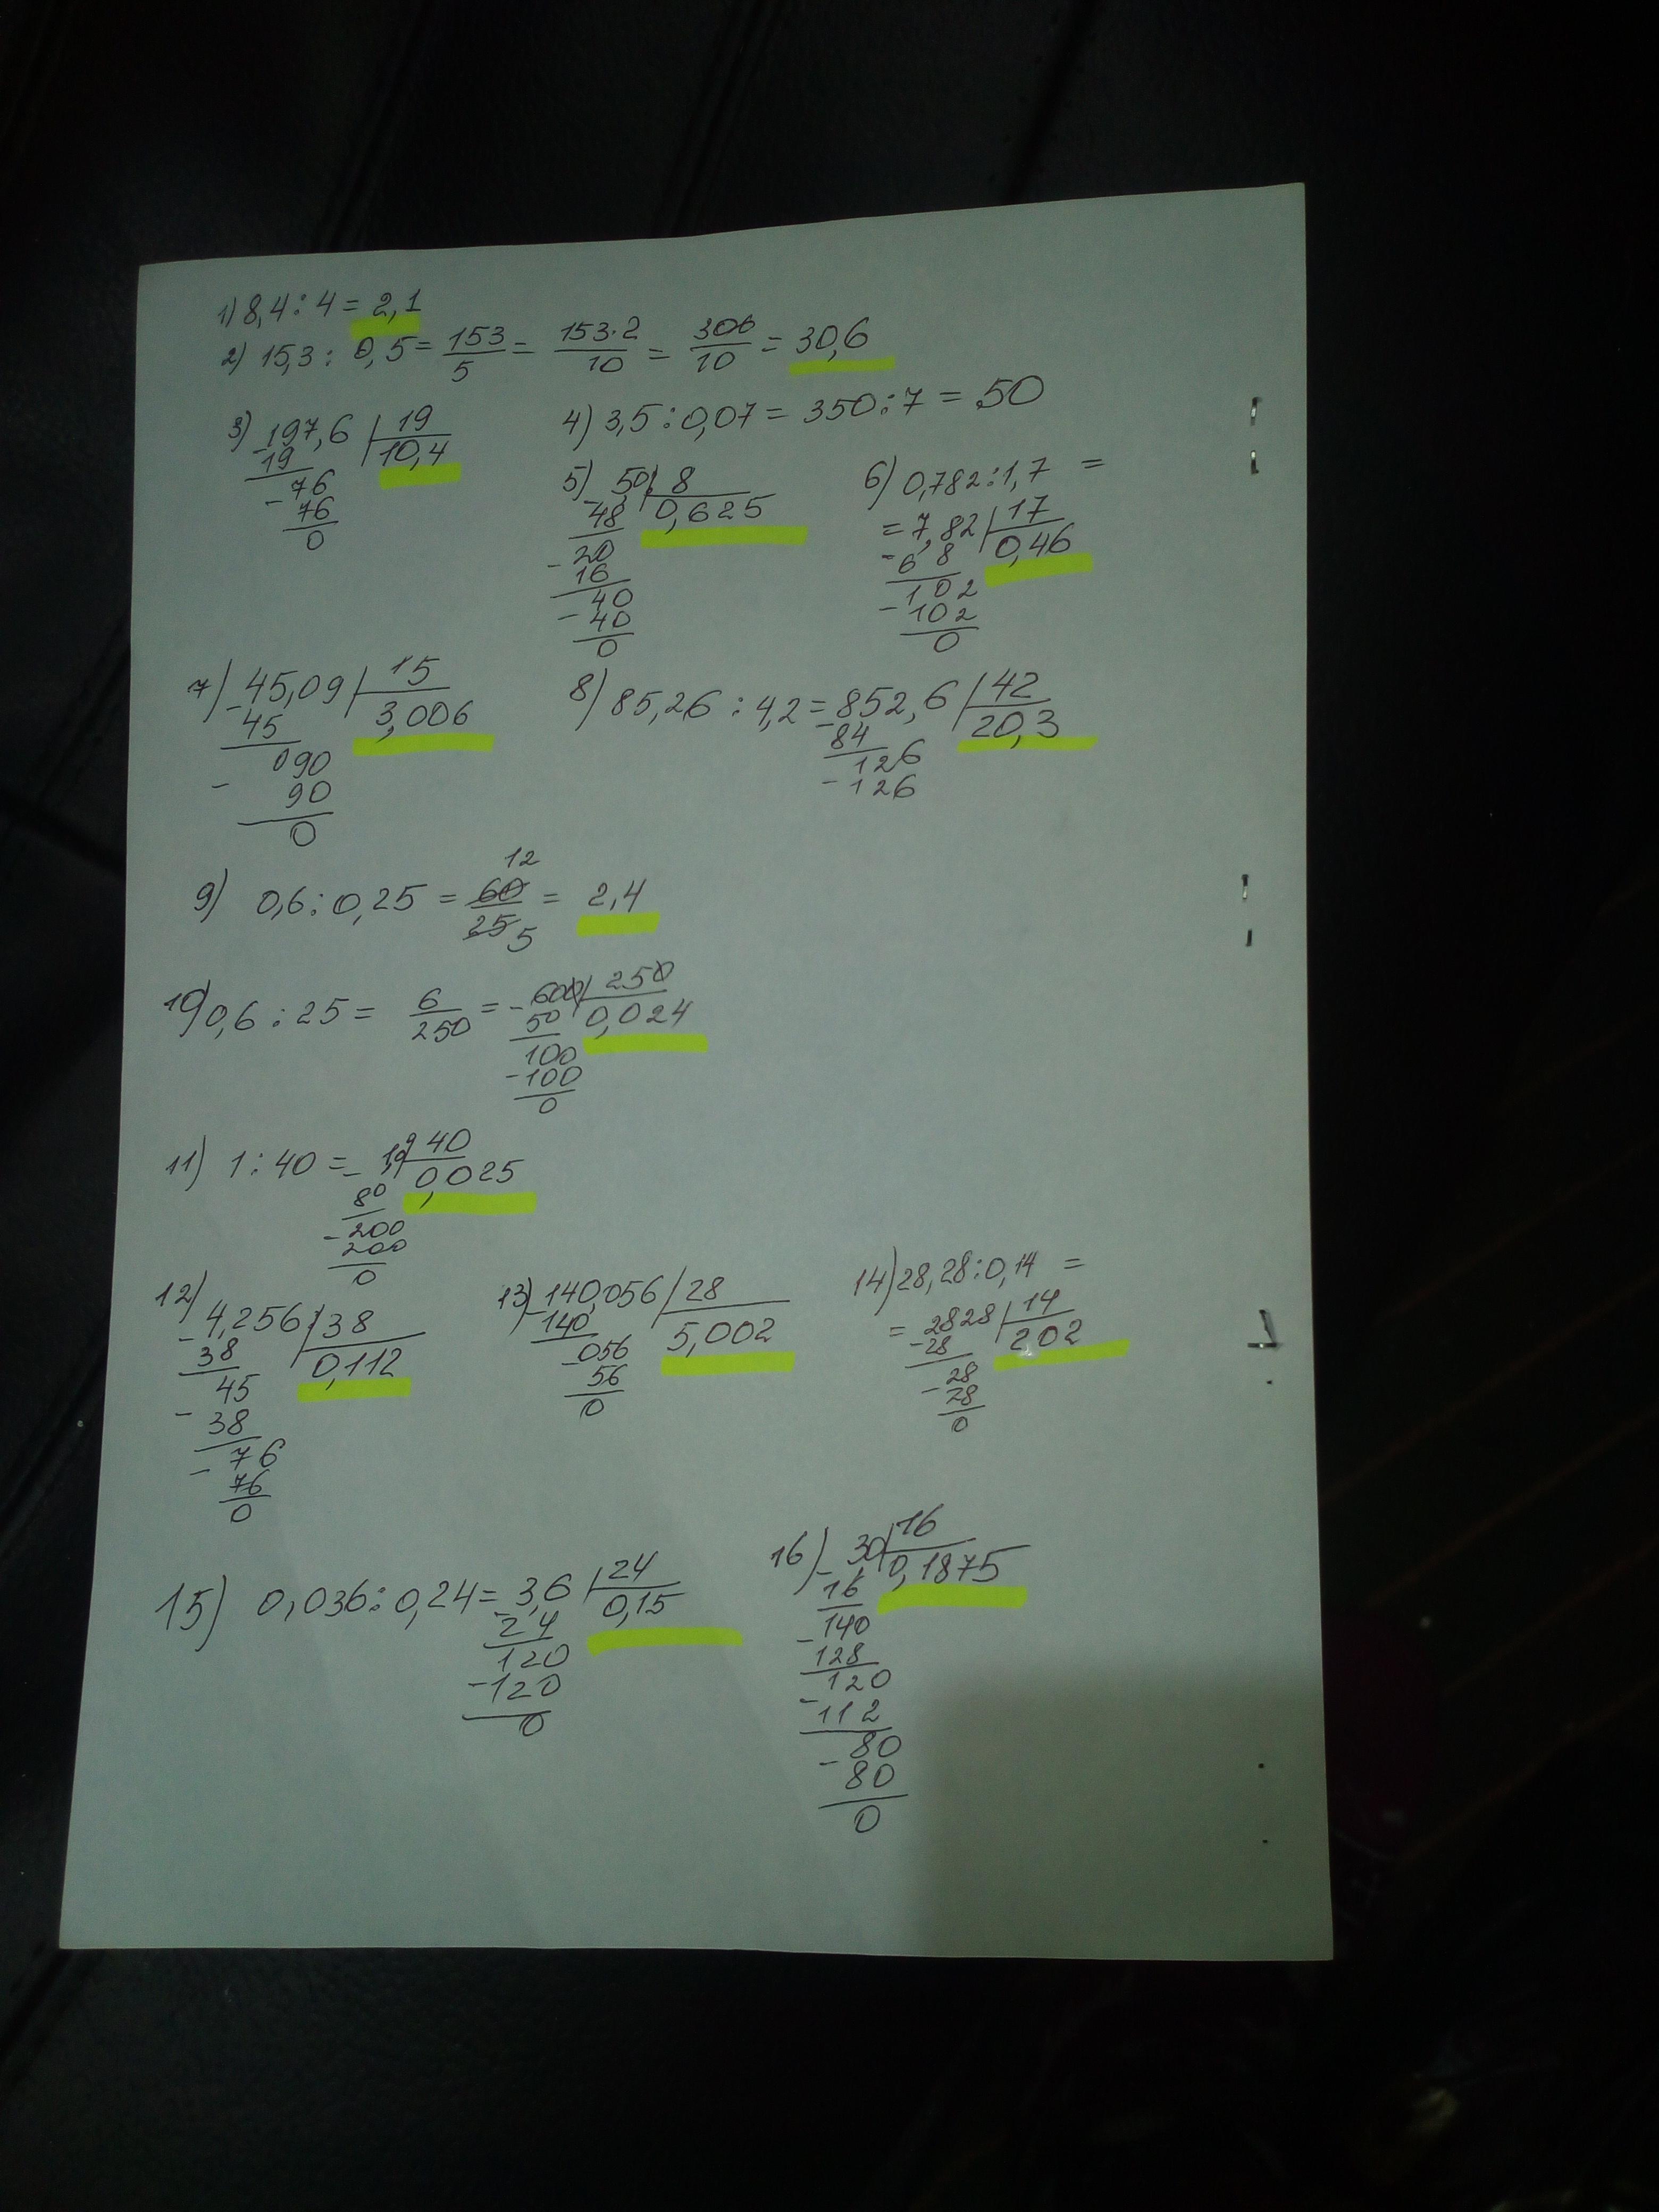 1) 8,4 : 4 = 2,1
2) 15,3 : 0,5 = 153/5 = 153·2/10 = 306/10 = 30,6
3) 197,6 | 19
- 19 | 10,4
- 76
76
0
4) 3,5 : 0,07 = 350 : 7 = 50
5) 50 | 8
- 48 | 0,625
- 20
16
- 40
40
0
6) 0,782 : 1,7 =
= 7,82 | 17
- 6 8 | 0,46
- 102
102
0
7) 45,09 | 15
- 45 | 3,006
- 090
90
0
8) 85,26 : 4,2 = 852,6 | 42
- 84 | 20,3
126
- 126
9) 0,6 : 0,25 = 60/25 = 2,4
12
5
10) 0,6 : 25 = 6/250 = 600 | 250
- 50 | 0,024
100
- 100
0
11) 1 : 40 = 40
- 80 | 0,025
- 200
200
0
12) 4,256 | 38
- 38 | 0,112
45
- 38
- 76
76
0
13) 140,056 | 28
- 140 | 5,002
- 056
56
0
14) 28,28 : 0,14 =
= 2828 | 14
- 28 | 202
- 28
28
0
15) 0,036 : 0,24 = 3,6 | 24
- 24 | 0,15
120
- 120
0
16) 30 | 16
- 16 | 0,1875
140
- 128
120
- 112
80
- 80
0